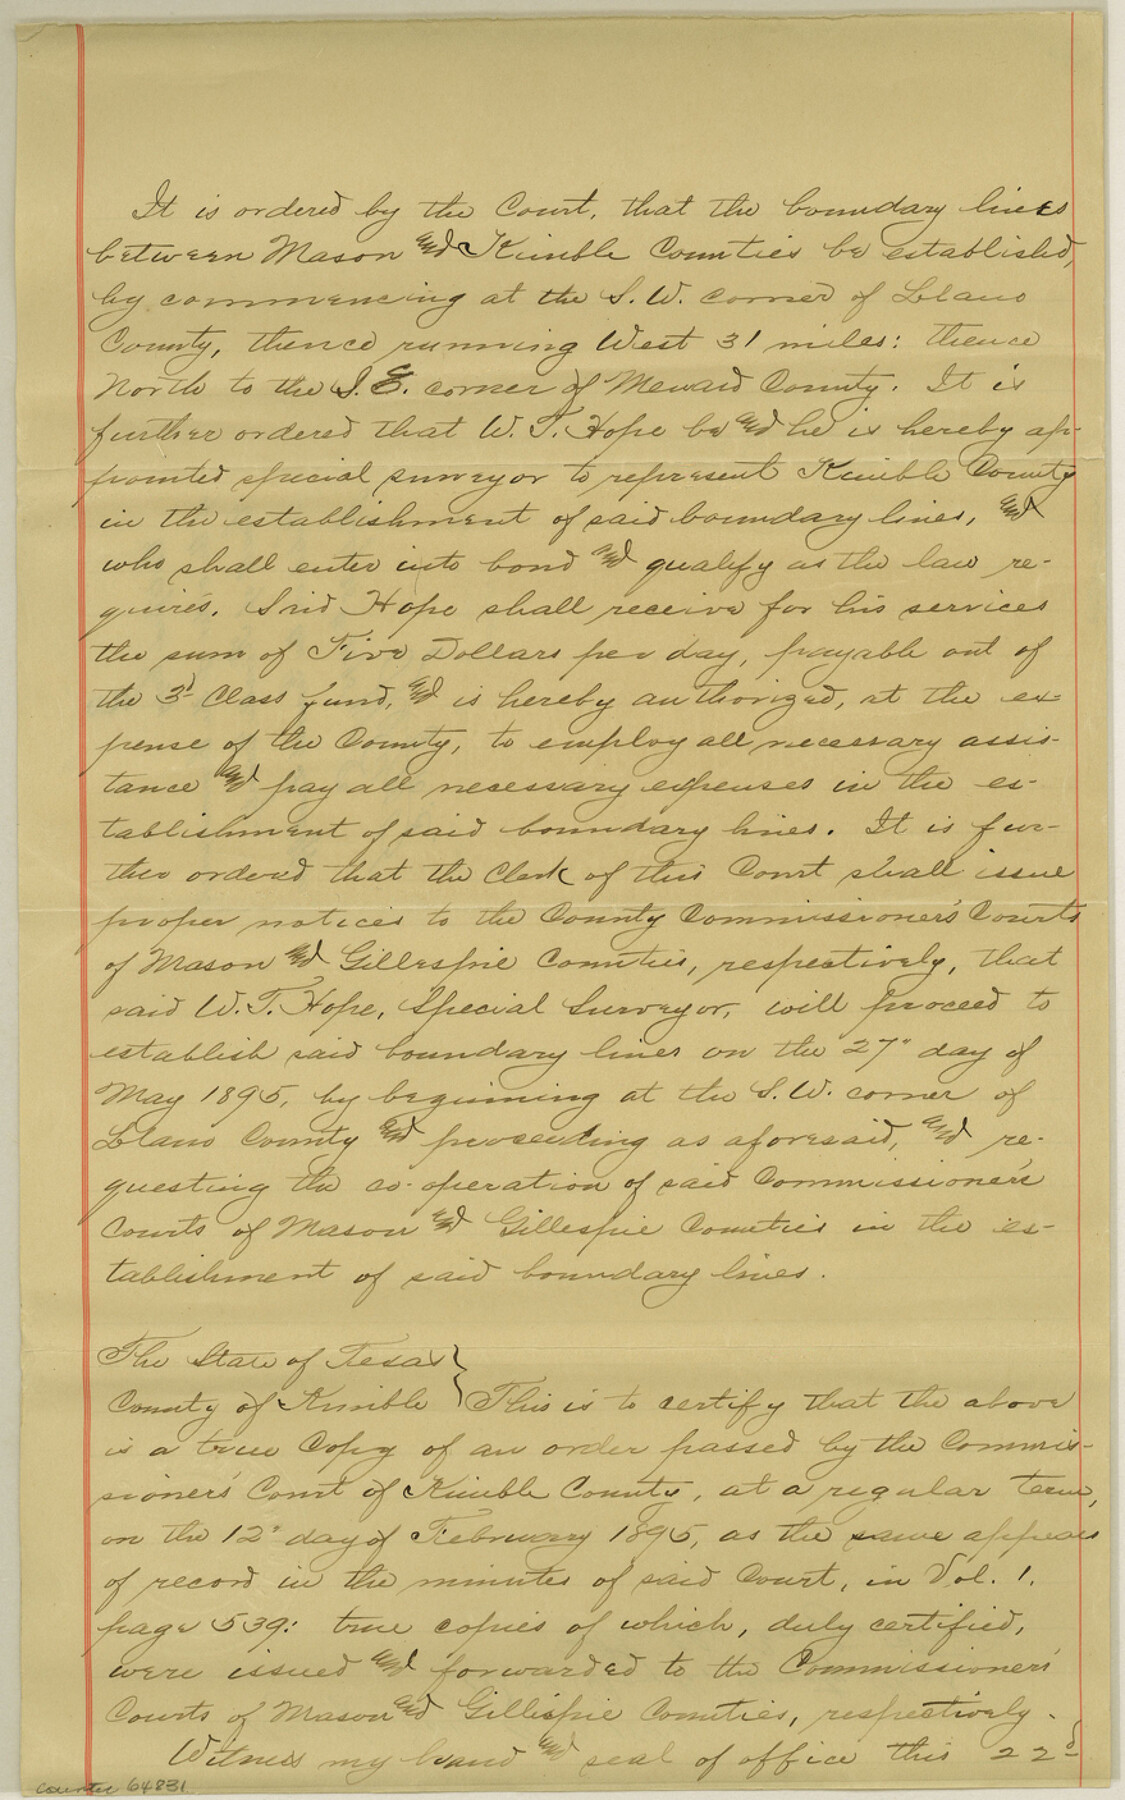 It is ordered by the Court, that the boundary lines
between Mason and Kimble Counties be established,
by commencing at the S. W. corner of Llano
County, thence running West 31 miles: thence
North to the S. E. corner of Menard County. It is
further ordered that W. T. Hope be and he is hereby ap-
pointed special surveyor to represent Kimble County
in the establishment of said boundary lines, and
who shall enter into bond and qualify as the law re-
quires. Said Hope shall receive for his services
the sum of Five Dollars per day, payable out of
the 3d Class fund, and is hereby authorized, at the ex-
pense of the County, to employ all necessary assis-
tance and pay all necessary expenses in the es-
tablishment of said boundary lines. It is fur-
ther ordered that the Clerk of this Court shall issue
proper notices to the County Commissioner's Courts
of Mason and Gillespie Counties, respectively, that
said W. T. Hope, Special Surveyor, will proceed to
establish said boundary lines on the 27" day of
May 1895, by beginning at the S. W. corner of
Llano County and proceeding as aforesaid, and re-
questing the co-operation of said Commissioner's
Courts of Mason and Gillespie Counties in the es-
tablishment of said boundary lines.
The State of Texas }
County of Kimble } This is to certify that the above
is a true Copy of an order passed by the Commis-
sioner's Court of Kimble County, at a regular term,
on the 12" day of February 1895, as the same appears
of record in the minutes of said Court, in Vol. 1.
page 539: true copies of which, duly certified,
were issued and forwarded to the Commissioner's
Courts of Mason and Gillespie Counties, respectively.
Witness my hand and seal of office this 22d
counter 64831